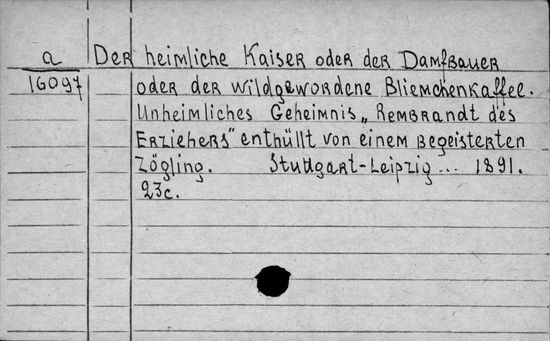 a Der heimliche Kaiser oder der Damfbauer
16097 oder der wildgewordene Bliemchenkaffee.
Unheimliches Geheimnis „Rembrandt des
Erziehers" enthüllt von einem begeisterten
Zögling. Stuttgart-Leipzig... 1891.
23c.